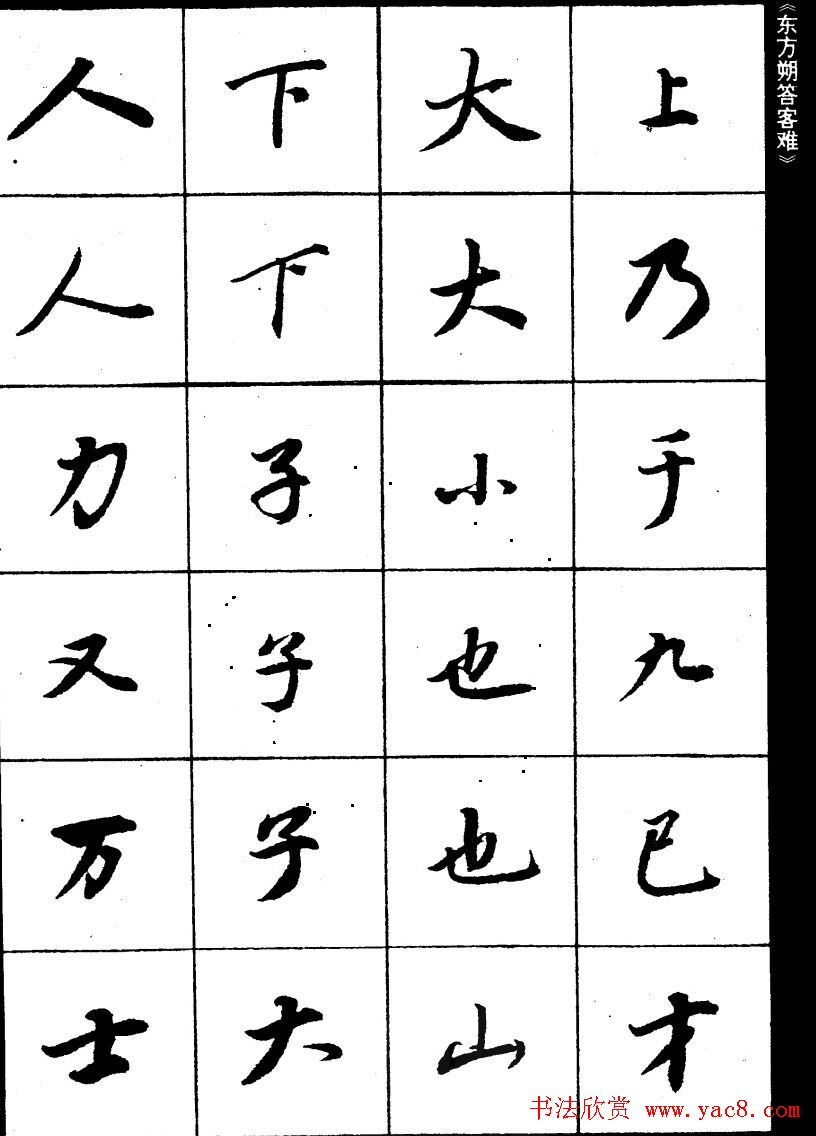 《东方朔答客难》
上乃于九已才
大大小也也山
下下子子子大
人人力又万士
书法欣赏 www.yac8.com